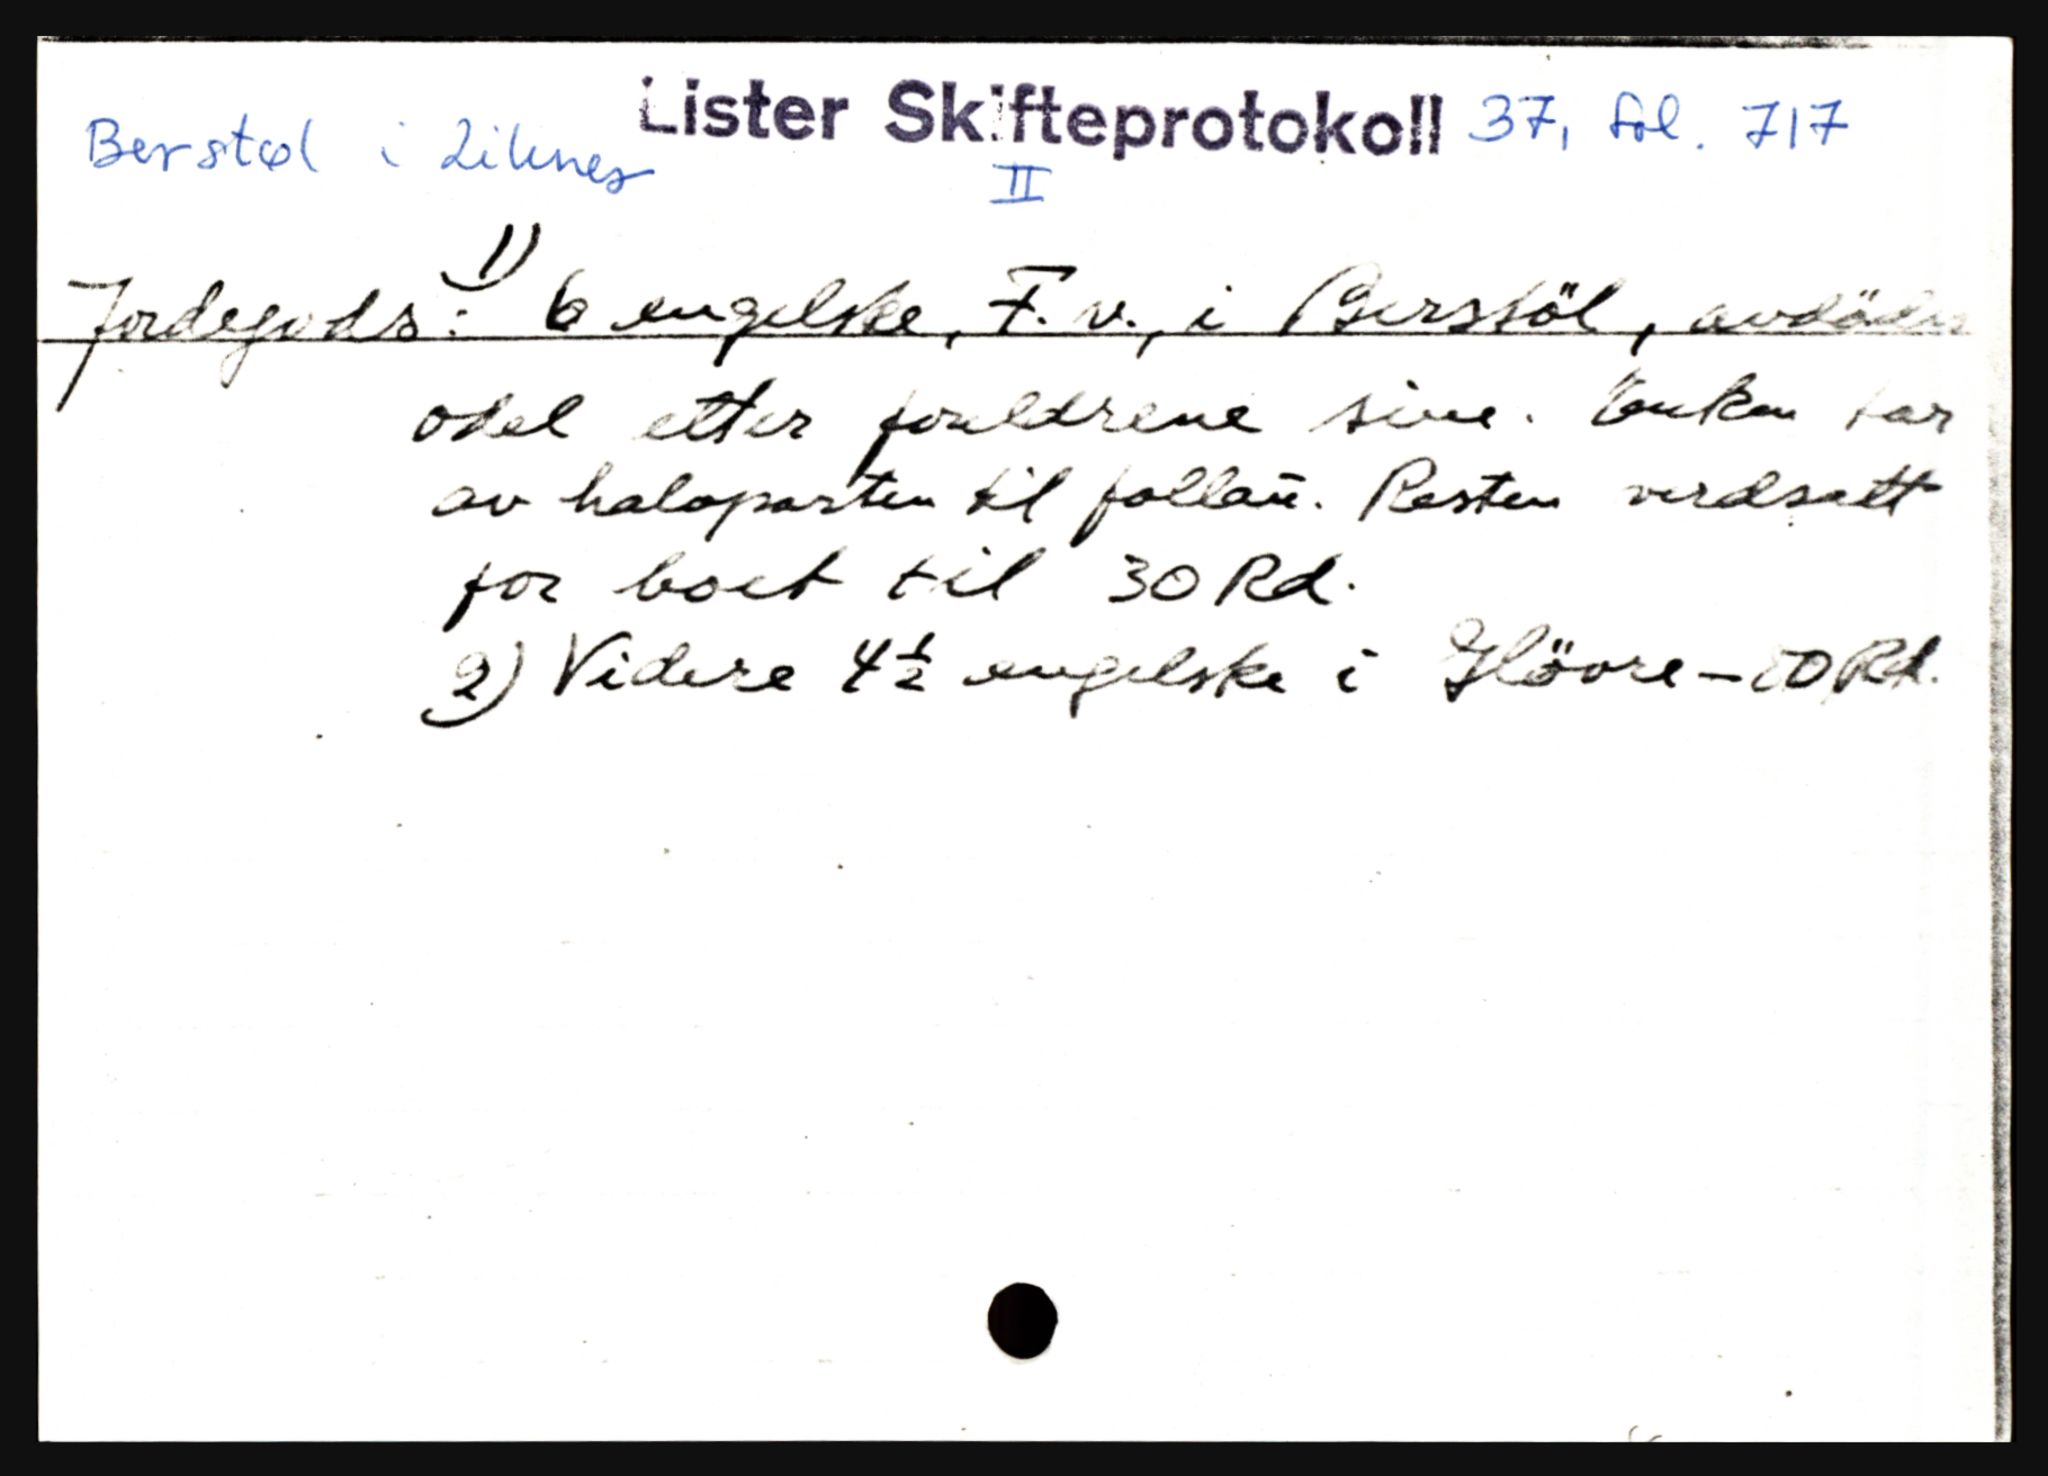 Lister Skifteprotokoll 37, fol. 717
Berstøl i Liknes
II
Jordegods: 1) 6 engelske, F. v., i Berstöl, avdödes
odel etter foreldrene sine. Enken tar
av halvparten til føllaū. Resten verdsatt
for boet til 30 Rd.
2) Videre 4 ½ engelske i Hövre - Rd.